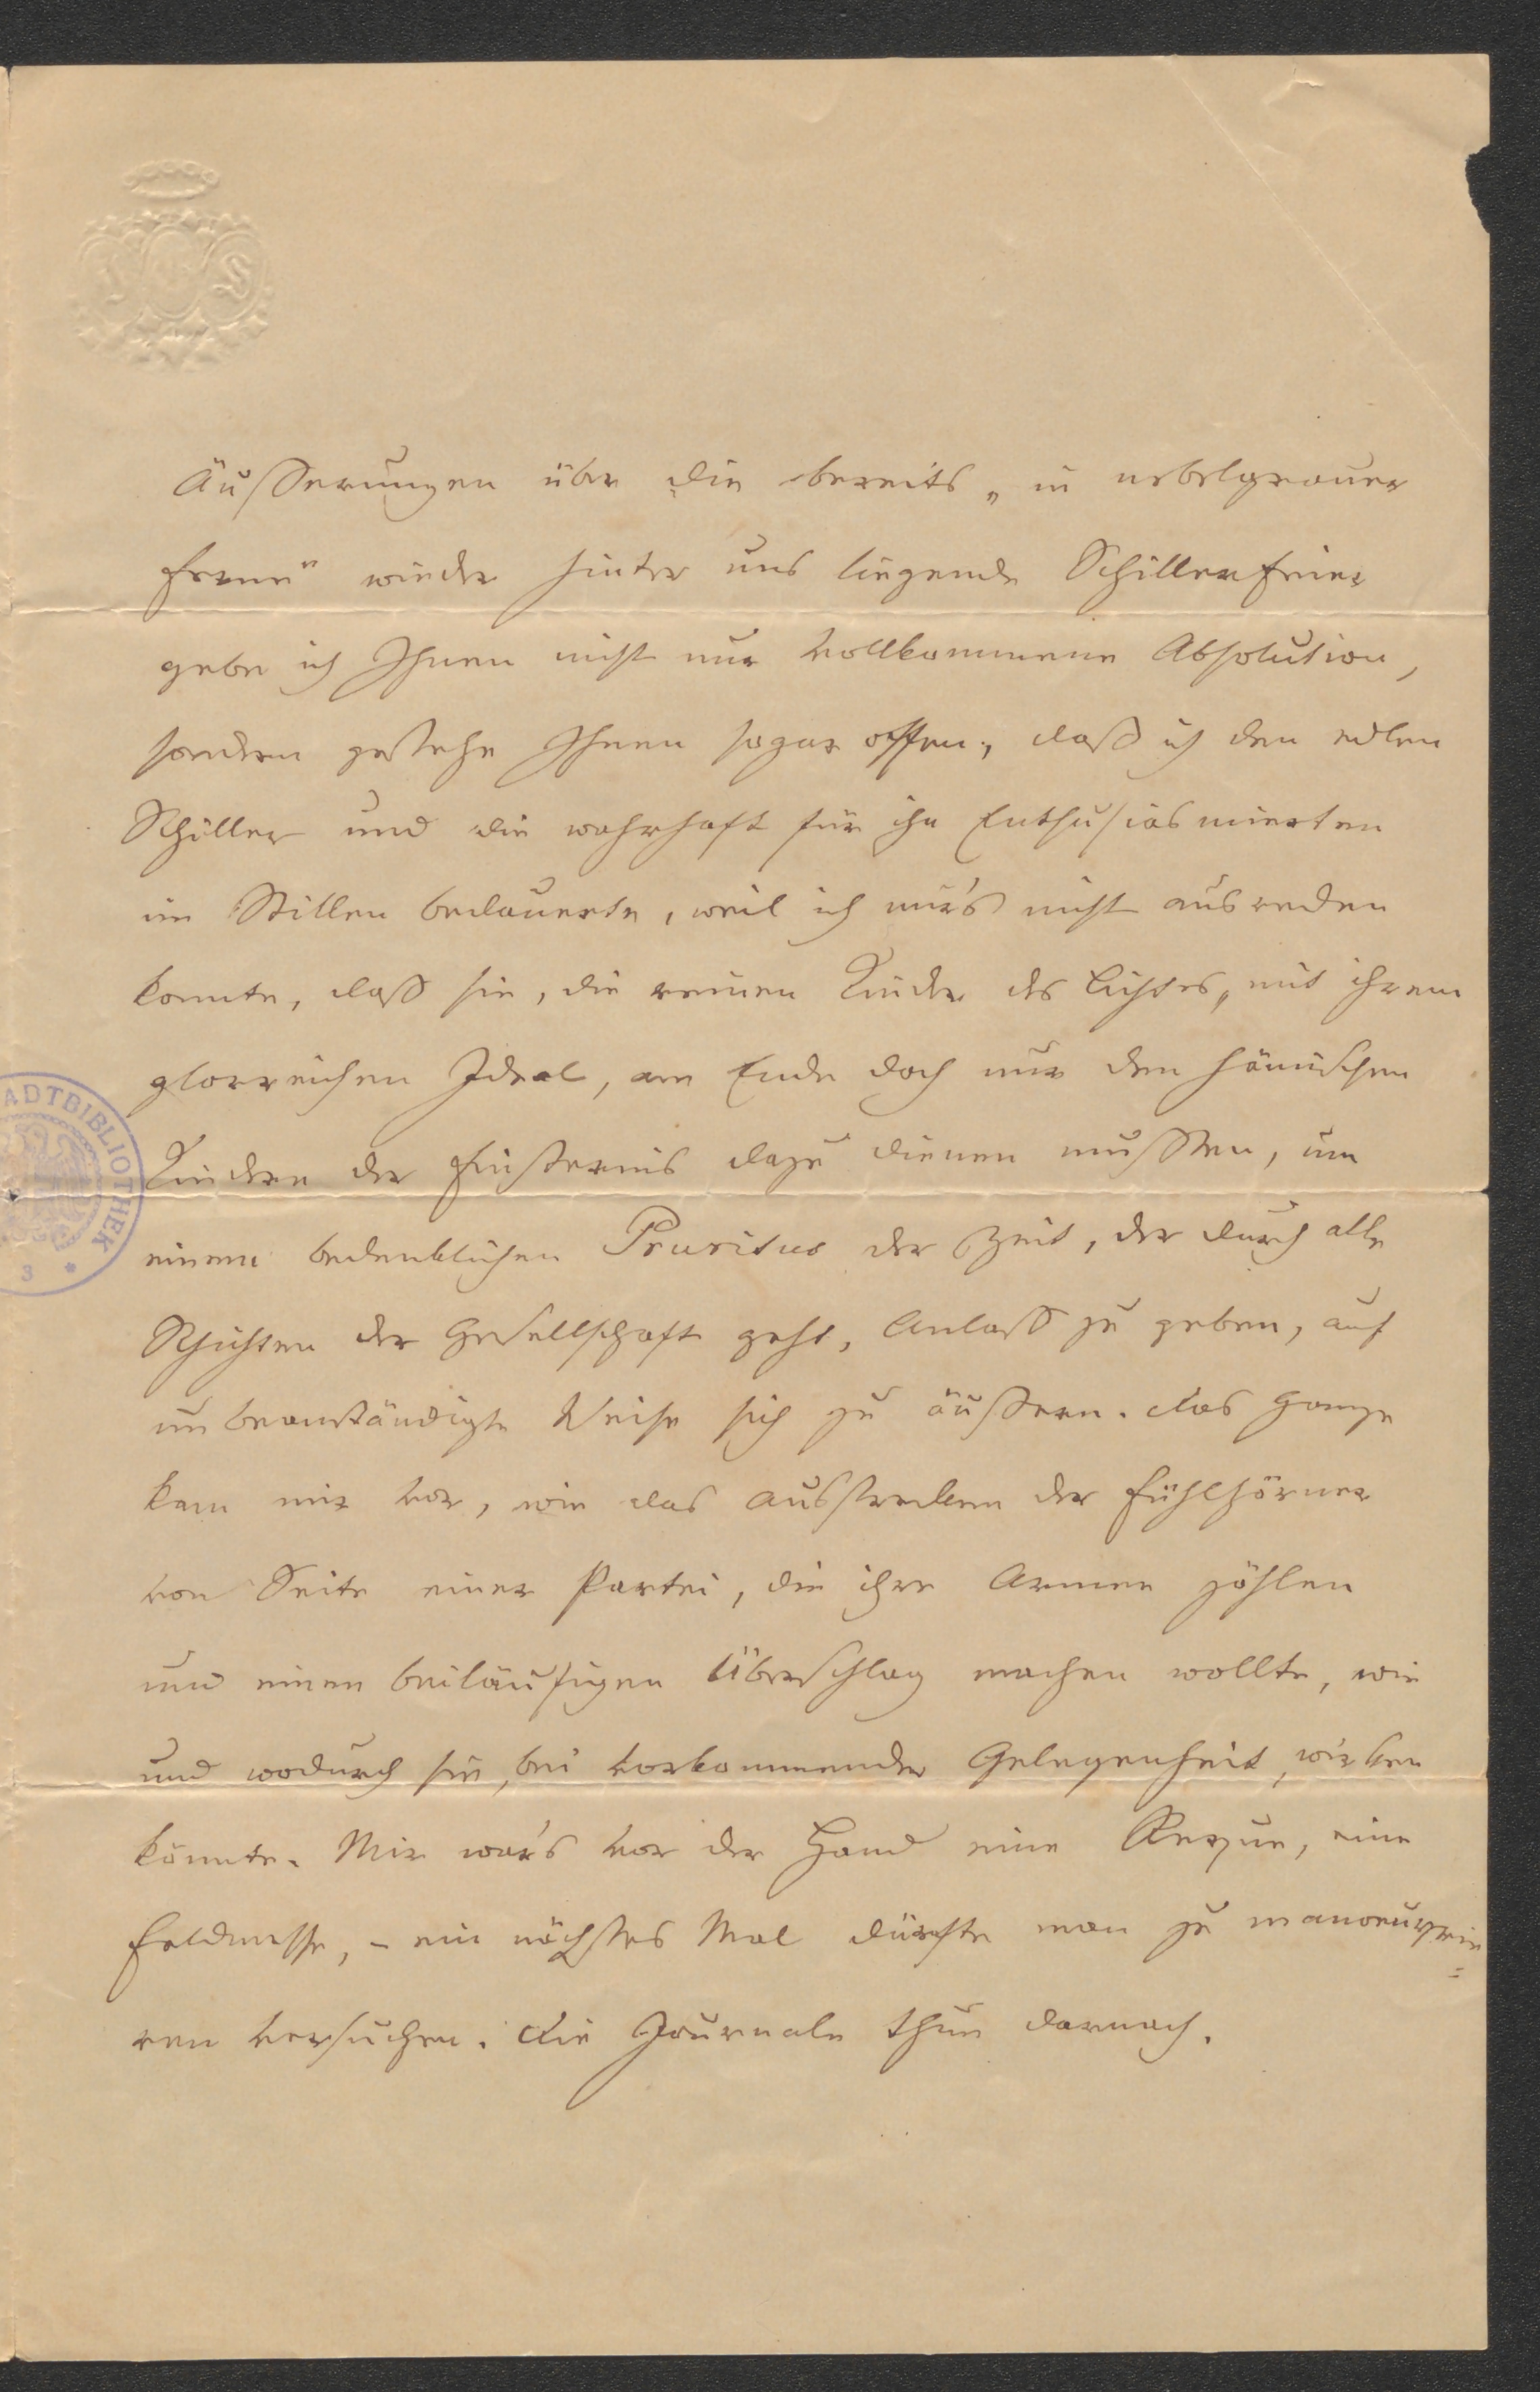 Äusserungen über die bereits „in nebelgrauer
Ferne“ wieder hinter uns liegende Schillerfeier
gebe ich Ihnen nicht nur vollkommene Absolution,
sondern gestehe Ihnen sogar offen, daß ich den edlen
Schiller und die wahrhaft für ihn Enthusiasmierten
im Stillen bedauerte, weil ich mir's nicht ausreden
konnte, dass sie, die reinen Kinder des Lichtes, mit ihrem
glorreichen Ideal, am Ende doch nur den hämischen
Kindern der Finsternis dazu dienen mussten, um
einem bedenklichen Pruritus der Zeit, der durch alle
Schichten der Gesellschaft geht, Anlass zu geben, auf
unbeanständigte Weise sich zu äussern. Das Ganze
kam mir vor, wie das Ausstrecken der Fühlhörner
von Seite einer Partei, die ihre Armee zählen
und einen beiläufigen Überschlag machen wollte, wie
und wodurch sie, bei vorkommender Gelegenheit, wirken
könnte. Mir war's vor der Hand eine Revue, eine
Feldmesse, – ein nächstes Mal dürfte man zu manoeuvrie=
ren versuchen. Die Journale thun darnach.
ADTBIBLIOTHEK
3 *